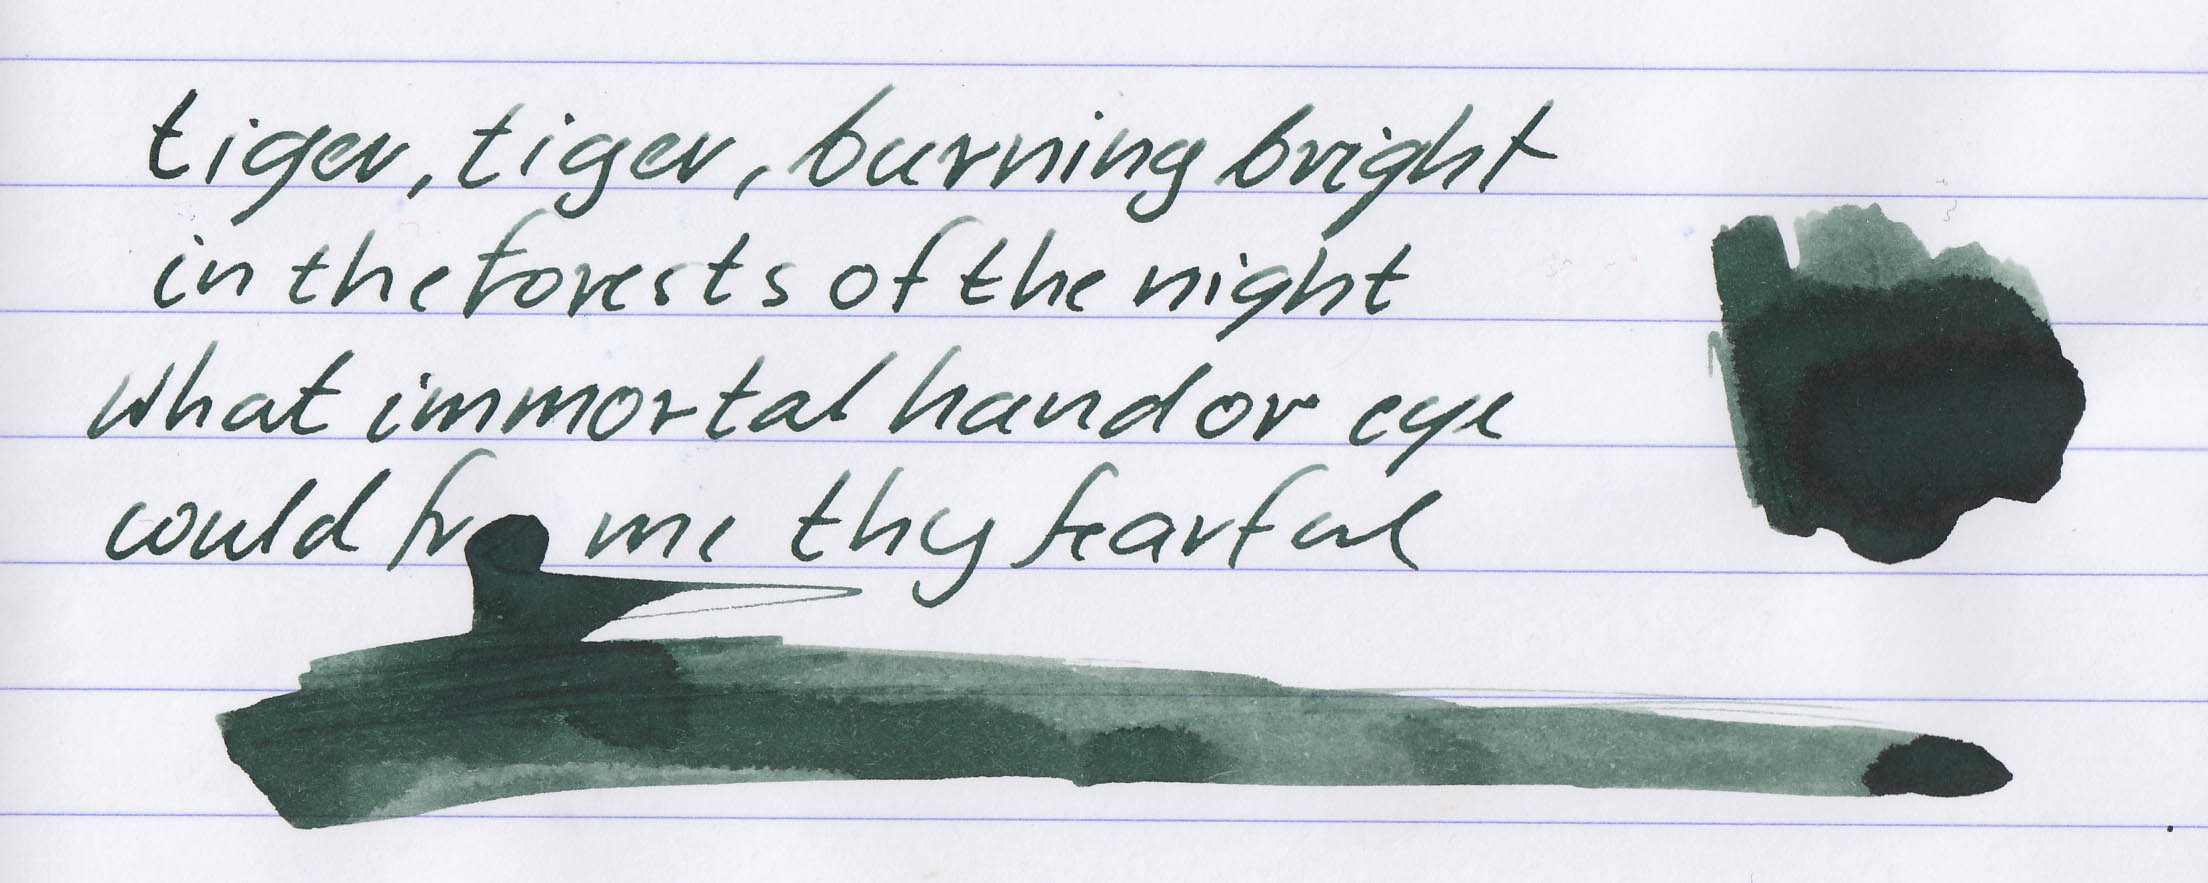 tiger, tiger, burning bright
in the forests of the night
what immortal hand or eye
could fr me thy fearful